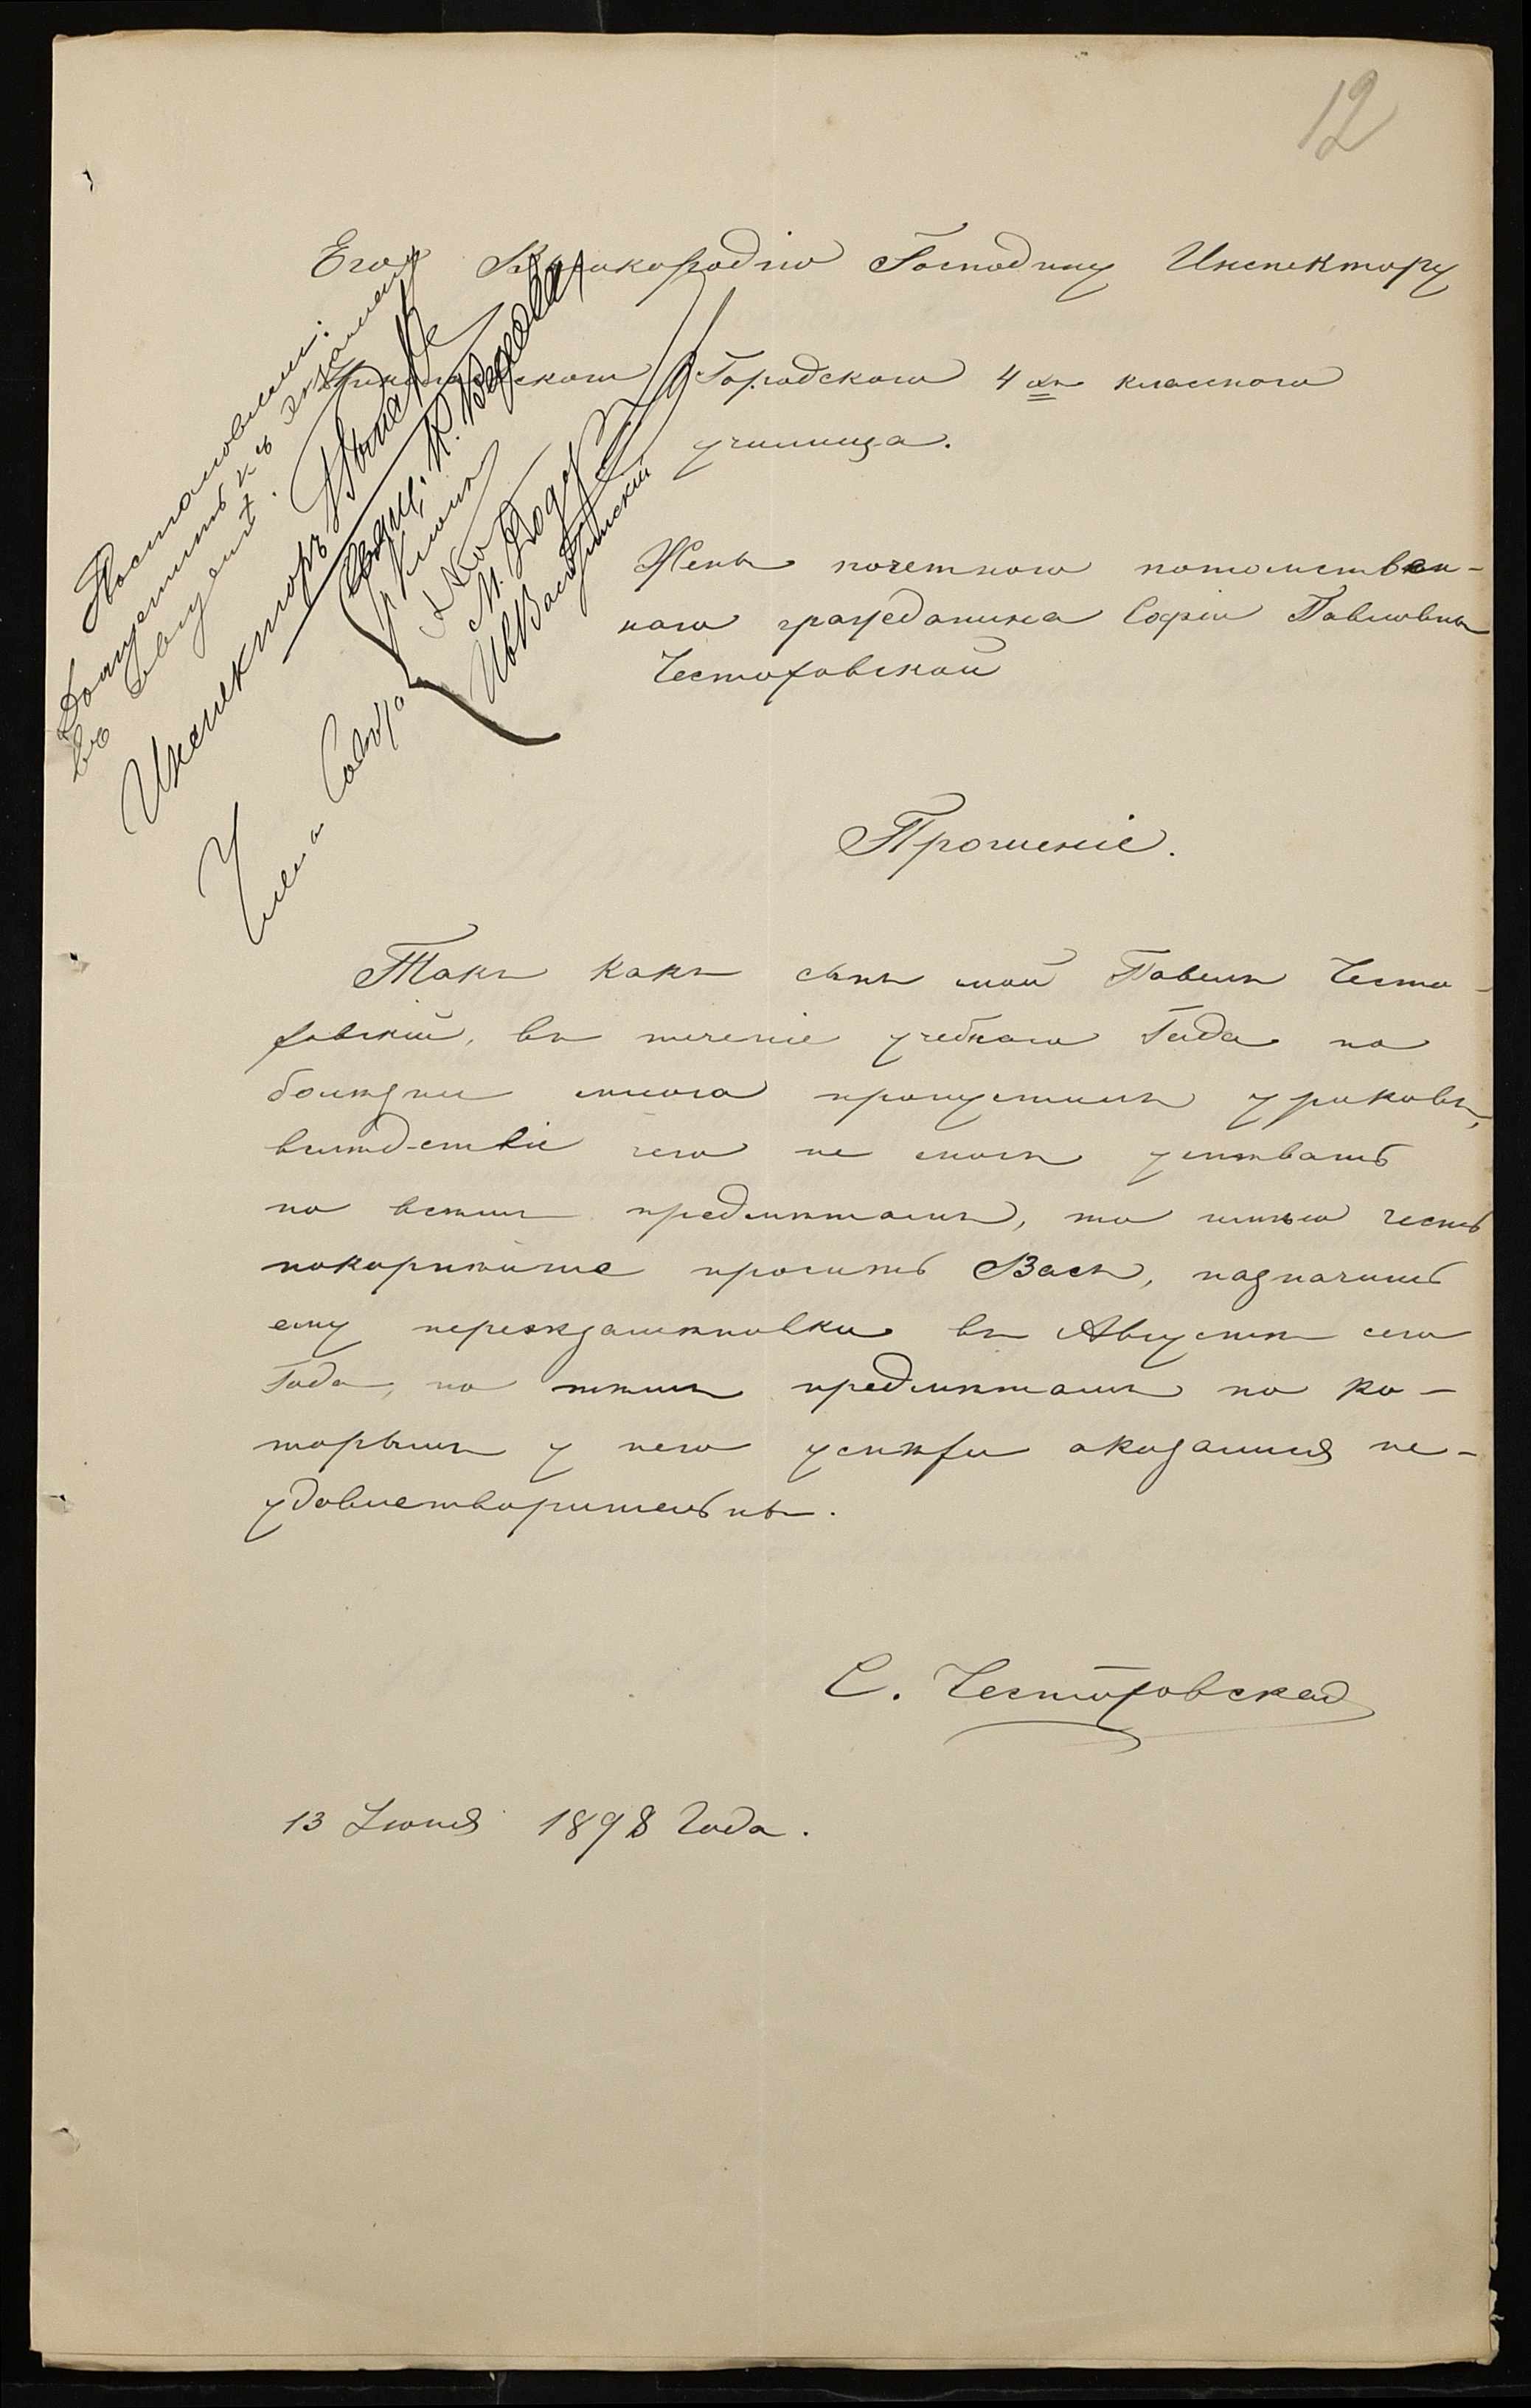 12
Его Высокородію Господину Инспектору
Городского 4хъ класснаго
училища.
Жены почетнаго потомствен-
наго гражданина Софіи Павловны
Честоховской
Прошеніе.
Такъ какъ сынъ мой Павелъ Често-
ховскій, въ теченіе учебнаго Года по
болѣзни много пропустилъ уроковъ,
вслѣдствіе чего не могъ успѣвать
по всѣмъ предмѣтамъ, то имѣю честь
покорнѣйше просить Васъ, назначить
ему переэкзаменовки въ Августѣ сего
Года, по тѣмъ предмѣтамъ по ко-
торымъ у него успѣхи оказались не-
удовлетворительны.
С. Честоховская
13 Іюня 1898 Года.
Постановили:
Допустить къ экзамену
въ августѣ.
Инспекторъ
Члены Совѣта